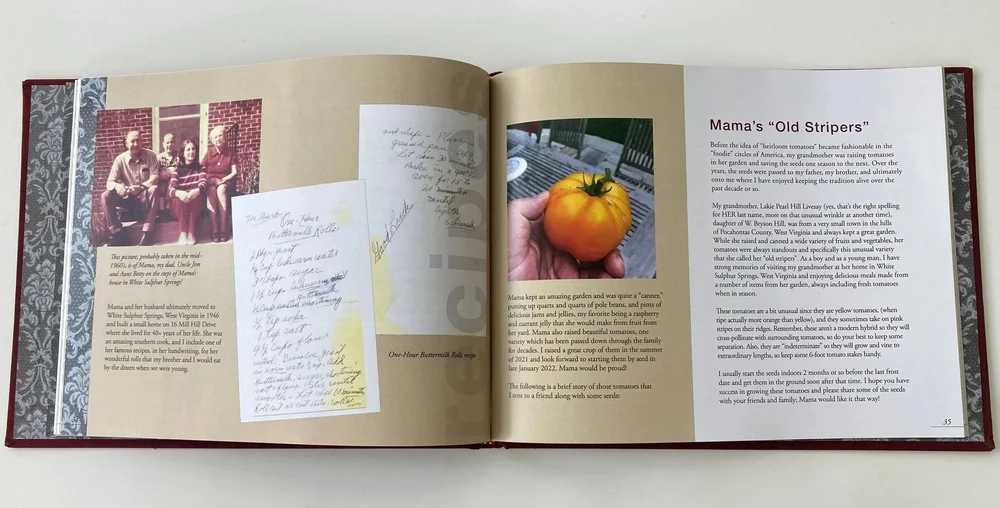 This picture, probably taken in the mid-
1960's, is of Mama, my dad, Uncle Jim
and Aunt Betty on the steps of Mama's
house in White Sulphur Springs!
Mama and her husband ultimately moved to
White Sulphur Springs, West Virginia in 1946
and built a small home on 16 Mill Hill Drive
where she lived for 40+ years of her life. She was
an amazing southern cook, and I include one of
her famous recipes, in her handwriting, for her
wonderful rolls that my brother and I would eat
by the dozen when we were young.
One-Hour
Buttermilk Rolls
2 pkgs. yeast
1/4 cup lukewarm water
3 tbsps. sugar
1 1/2 cups lukewarm
Buttermilk
1/2 cup melted shortening
1/2 tsp soda
1 tsp salt
4 1/2 cups flour
Method - Dissolve yeast
in warm water, Add
Buttermilk, sugar, shortening
smooth - Let rise 10 minutes
Roll out or cut into rolls
and shape - Place
greased pan
let rise 30
Bake in a
oven for 15 to
20 minutes
Good Luck
recipes
One-Hour Buttermilk Rolls recipe
Mama kept an amazing garden and was quite a "canner,"
putting up quarts and quarts of pole beans, and pints of
delicious jams and jellies, my favorite being a raspberry
and currant jelly that she would make from fruit from
her yard. Mama also raised beautiful tomatoes, one
variety which has been passed down through the family
for decades. I raised a great crop of them in the summer
of 2021 and look forward to starting them by seed in
late January 2022. Mama would be proud!
The following is a brief story of those tomatoes that
I sent to a friend along with some seeds:
Mama's "Old Stripers"
Before the idea of "heirloom tomatoes" became fashionable in the
"foodie" circles of America, my grandmother was raising tomatoes
in her garden and saving the seeds one season to the next. Over the
years, the seeds were passed to my father, my brother, and ultimately
onto me where I have enjoyed keeping the tradition alive over the
past decade or so.
My grandmother, Lakie Pearl Hill Livesay (yes, that's the right spelling
for HER last name, more on that unusual wrinkle at another time),
daughter of W. Bryson Hill, was from a very small town in the hills
of Pocahontas County, West Virginia and always kept a great garden.
While she raised and canned a wide variety of fruits and vegetables, her
tomatoes were always standouts and specifically this unusual variety
that she called her "old stripers". As a boy and as a young man, I have
strong memories of visiting my grandmother at her home in White
Sulphur Springs, West Virginia and enjoying delicious meals made from
a number of items from her garden, always including fresh tomatoes
when in season.
These tomatoes are a bit unusual since they are yellow tomatoes, (when
ripe actually more orange than yellow), and they sometimes take on pink
stripes on their ridges. Remember, these aren't a modern hybrid so they will
cross-pollinate with surrounding tomatoes, so do your best to keep some
separation. Also, they are "indeterminate" so they will grow and vine to
extraordinary lengths, so keep some 6-foot tomato stakes handy.
I usually start the seeds indoors 2 months or so before the last frost
date and get them in the ground soon after that time. I hope you have
success in growing these tomatoes and please share some of the seeds
with your friends and family; Mama would like it that way!
35